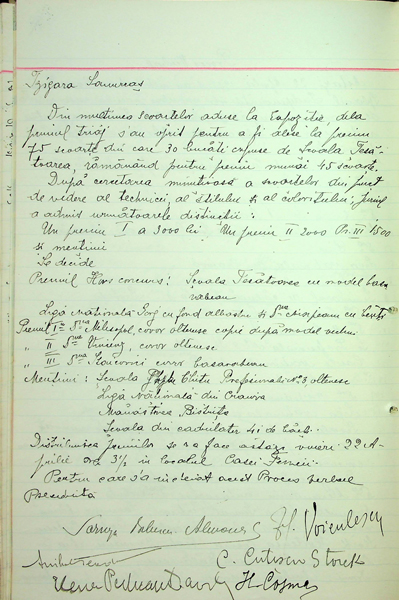 Tzigara Samurcaș
Din mulțimea scoarțelor aduse la Expoziție, dela
primul triaj s'au oprit pentru a fi alese la premii
75 scoarțe din care 30 bucăți expuse de Școala Țesă-
toarea, rămânând pentru premii numai 45 scoarțe.
După cercetarea minuțioasă a scoarțelor din punct
de vedere al technicei, al stilului și al coloritului, juriul
a admis următoarele distincții:
Un premiu I a 3000 lei Un premiu II 2000 Pr. III 1500
și mențiuni
Se decide
Premiul Hors concurs: Școala Țesătoarea cu model basa
rabean
Liga Națională Gorj cu fond albastru și D-na
Premiul I D-na covor oltenesc copie după model vechiu
" II D-na covor oltenesc
" III D-na covor basarabean
Mențiuni: Școala Profesională No 3, oltenesc
Liga Națională din Craiova
Mănăstirea Bistrița
Școala din
Distribuirea premiilor se va face astăzi vineri 22 A-
prilie ora 3½ in localul Casei Femeii.
Pentru care s'a incheiat acest Proces verbal
Președintă
Voiculescu
C. Cutescu Storck
H. Cosma